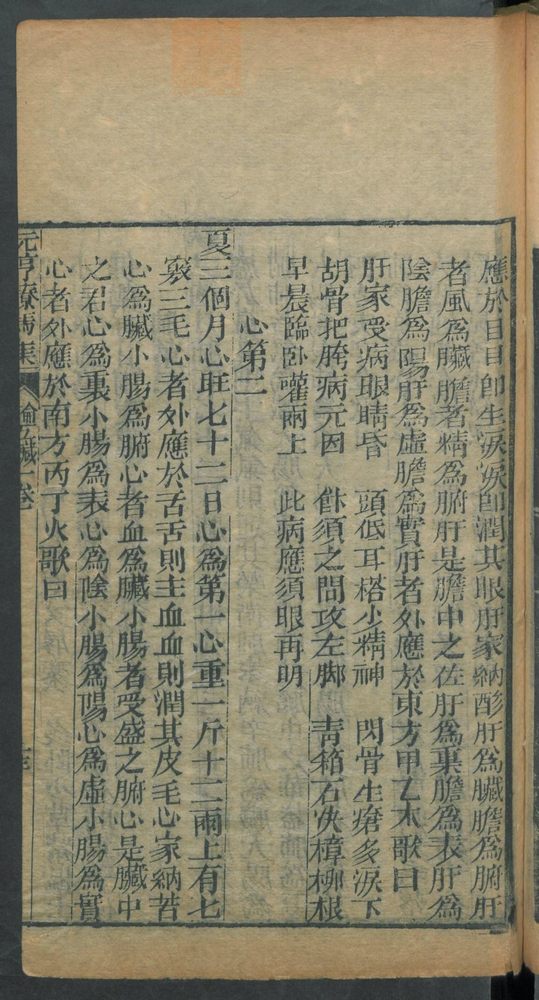 應於目目卽生淚淚卽潤其眼肝家納酸肝爲臟膽爲腑肝
者風爲臟膽者精爲腑肝是膽中之佐肝爲裏膽爲表肝爲
陰膽爲陽肝爲虛膽爲實肝者外應於東方甲乙木歌曰
肝家受病眼睛昏 頭低耳搭少精神 閃骨生瘡多淚下
胡骨把胯病元因 餘須之間攻左脚 靑箱石决樟柳根
早晨臨卧灌兩上 此病應須眼再明
心第二
夏三個月心旺七十二日心爲第一心重一斤十二兩上有七
竅三毛心者外應於舌舌則主血血則潤其皮毛心家納苦
心爲臟小腸爲腑心者血爲臟小腸者受盛之腑心是臟中
之君心爲裏小腸爲表心爲陰小腸爲陽心爲虛小腸爲實
心者外應於南方丙丁火歌曰
元亨療馬集 論五臟 卷